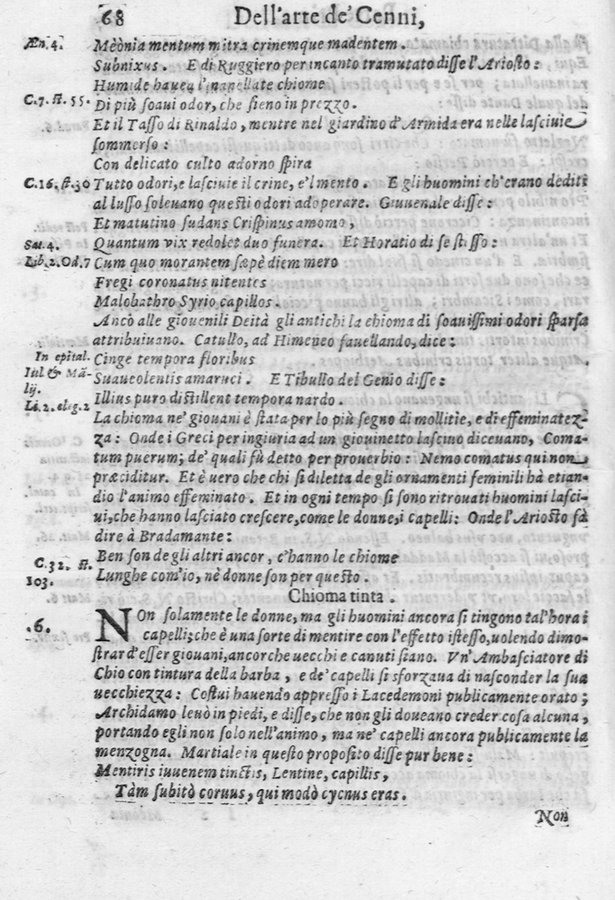 68 Dell'arte de' Cenni,
Æn. 4. Meònia mentum mitra crinemque madentem.
Subnixus. E di Ruggiero per incanto tramutato disse l'Ariosto:
Humide hauea l'innanellate chiome
C. 7. st. 55. Di più soaui odor, che sieno in prezzo.
Et il Tasso di Rinaldo, mentre nel giardino d'Armida era nelle lasciuie
sommerso:
Con delicato culto adorno spira
C. 16. st. 30 Tutto odori, e lasciuie il crine, e'l mento. E gli huomini ch'erano dediti
al lusso soleuano questi odori adoperare. Giuuenale disse:
Et matutino sudans Crispinus amomo,
Sat. 4. Quantum vix redolet duo funera. Et Horatio di se stesso:
Lib. 2. Od. 7 Cum quo morantem sæpè diem mero
Fregi coronatus nitentes
Malobathro Syrio capillos.
Ancò alle giouenili Deità gli antichi la chioma di soauissimi odori sparsa
attribuiuano. Catullo, ad Himeneo fauellando, dice:
In epital. Cinge tempora floribus
Iul & Mã- Suaueolentis amaruci. E Tibullo del Genio disse:
lij.
Li. 2. eleg. 2 Illius puro distillent tempora nardo.
La chioma ne' giouani è stata per lo più segno di mollitie, e di effeminatez-
za: Onde i Greci per ingiuria ad un giouinetto lasciuo diceuano, Coma-
tum puerum; de' quali fù detto per prouerbio: Nemo comatus qui non
præciditur. Et è uero che chi si diletta de gli ornamenti feminili hà etian-
dio l'animo effeminato. Et in ogni tempo si sono ritrouati huomini lasci-
ui, che hanno lasciato crescere, come le donne, i capelli: Onde l'Ariosto fà
dire à Bradamante:
C. 32. st. Ben son de gli altri ancor, c'hanno le chiome
103. Lunghe com'io, nè donne son per questo.
Chioma tinta.
.6. NOn solamente le donne, ma gli huomini ancora si tingono tal'hora i
capelli; che è una sorte di mentire con l'effetto istesso, uolendo dimo-
strar d'esser giouani, ancorche uecchi e canuti siano. Vn' Ambasciatore di
Chio con tintura della barba, e de' capelli si sforzaua di nasconder la sua
uecchiezza: Costui hauendo appresso i Lacedemoni publicamente orato;
Archidamo leuò in piedi, e disse, che non gli doueano creder cosa alcuna,
portando egli non solo nell'animo, ma ne' capelli ancora publicamente la
menzogna. Martiale in questo proposito disse pur bene:
Mentiris iuuenem tinctis, Lentine, capillis,
Tàm subitò coruus, qui modò cycnus eras.
Non